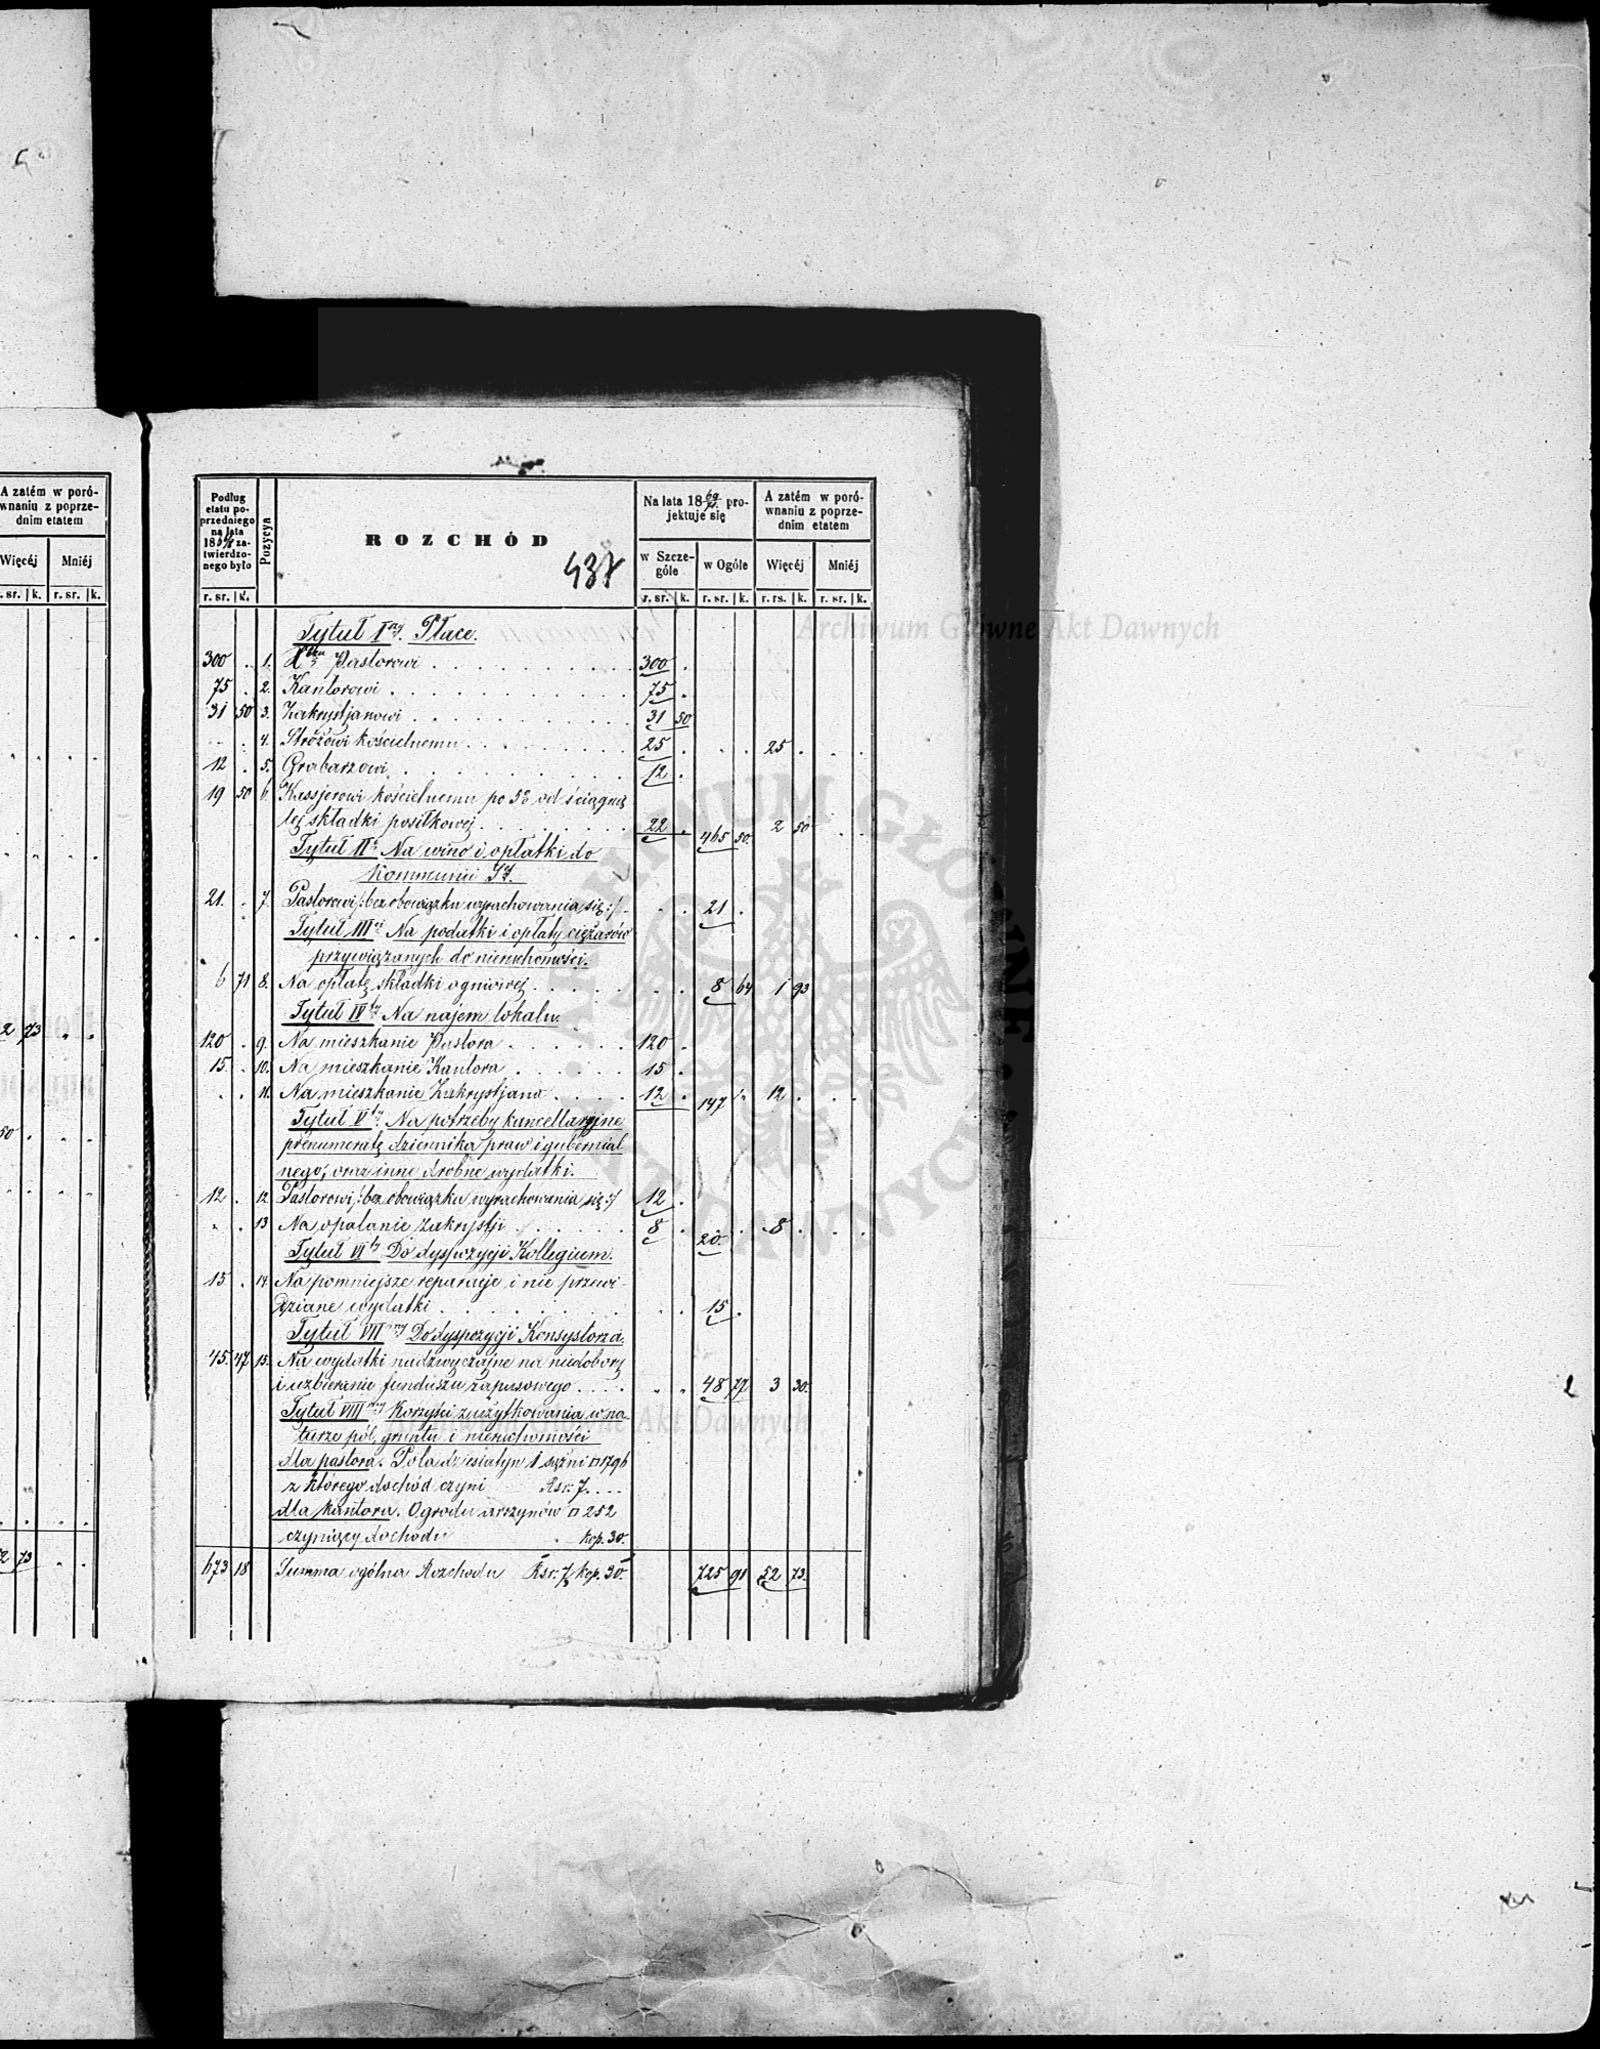 A zatém w poró-
wnaniu z poprze-
dnim etatem
Więcéj Mniéj
r. sr. k. r. sr. k.
2 73
50
2 73
Podług
etatu po-
przedniego
na lata
18 za-
twierdzo-
nego było
r. sr. k.
Pozycya
ROZCHÓD
437
Na lata 18 69/71 pro-
jektuje się
w Szcze-
góle
w Ogóle
r. sr. k. r. sr. k.
A zatém w poró-
wnaniu z poprze-
dnim etatem
Więcéj Mniéj
r. rs. k. r. sr. k.
Tytuł I. Płace.
300 . 1. Pastorowi 300 .
75 . 2. Kantorowi 75 .
31 50 3. Zakrystjanowi 31 50
. 4. Stróżowi kościelnemu 25 . 25 .
12 . 5. Grabarzowi 12 .
19 50 6. Kassjerowi kościelnemu po 5% od ściągnię
tej składki posiłkowej 22 . 465 50. 2 50
Tytuł II Na wino i opłatki do
Kommunii Sej.
21. . 7. Pastorowi /: bez obowiązku wyrachowania się :/ 21 .
Tytuł III Na podatki i opłaty ciężarów
przywiązanych do nieruchomości.
6 71 8. Na opłatę składki ogniowej 8 64 1 93
Tytuł IV Na najem lokalu.
120 . 9. Na mieszkanie Pastora 120 .
15. . 10. Na mieszkanie Kantora 15 .
. 11. Na mieszkanie Zakrystjana 12 . 147 12 .
Tytuł V Na potrzeby kancellaryjne
prenumeratę dziennika praw i gubernial
nego, oraz inne drobne wydatki.
12 . 12 Pastorowi /: bez obowiązku wyrachowania się :/ 12 .
. 13 Na opalanie zakrystji 8 . 20. 8 .
Tytuł VI Do dyspozycji Kollegium.
15 . 14 Na pomniejsze reparacje i nie przewi-
dziane wydatki 15 .
Tytuł VII Do dyspozycji Konsystorza.
45. 47 15. Na wydatki nadzwyczajne na niedobory
i uzbieranie funduszu zapasowego 48 77 3 30.
Tytuł VIII Korzyści z użytkowania w na-
turze pól, gruntu i nieruchomości
dla pastora. Pola dziesiatyn 1 sążni □ 1796
z którego dochód czyni Rsr. 7.
dla kantora. Ogrodu arszynów □ 252
czyniący dochodu kop. 30.
673 18 Summa ogólna Rozchodu Rsr. 7 kop. 30. 725 91 52 73.
Archiwum Główne Akt Dawnych
ARCHIWUM GŁÓWNE AKT DAWNYCH
Archiwum Główne Akt Dawnych